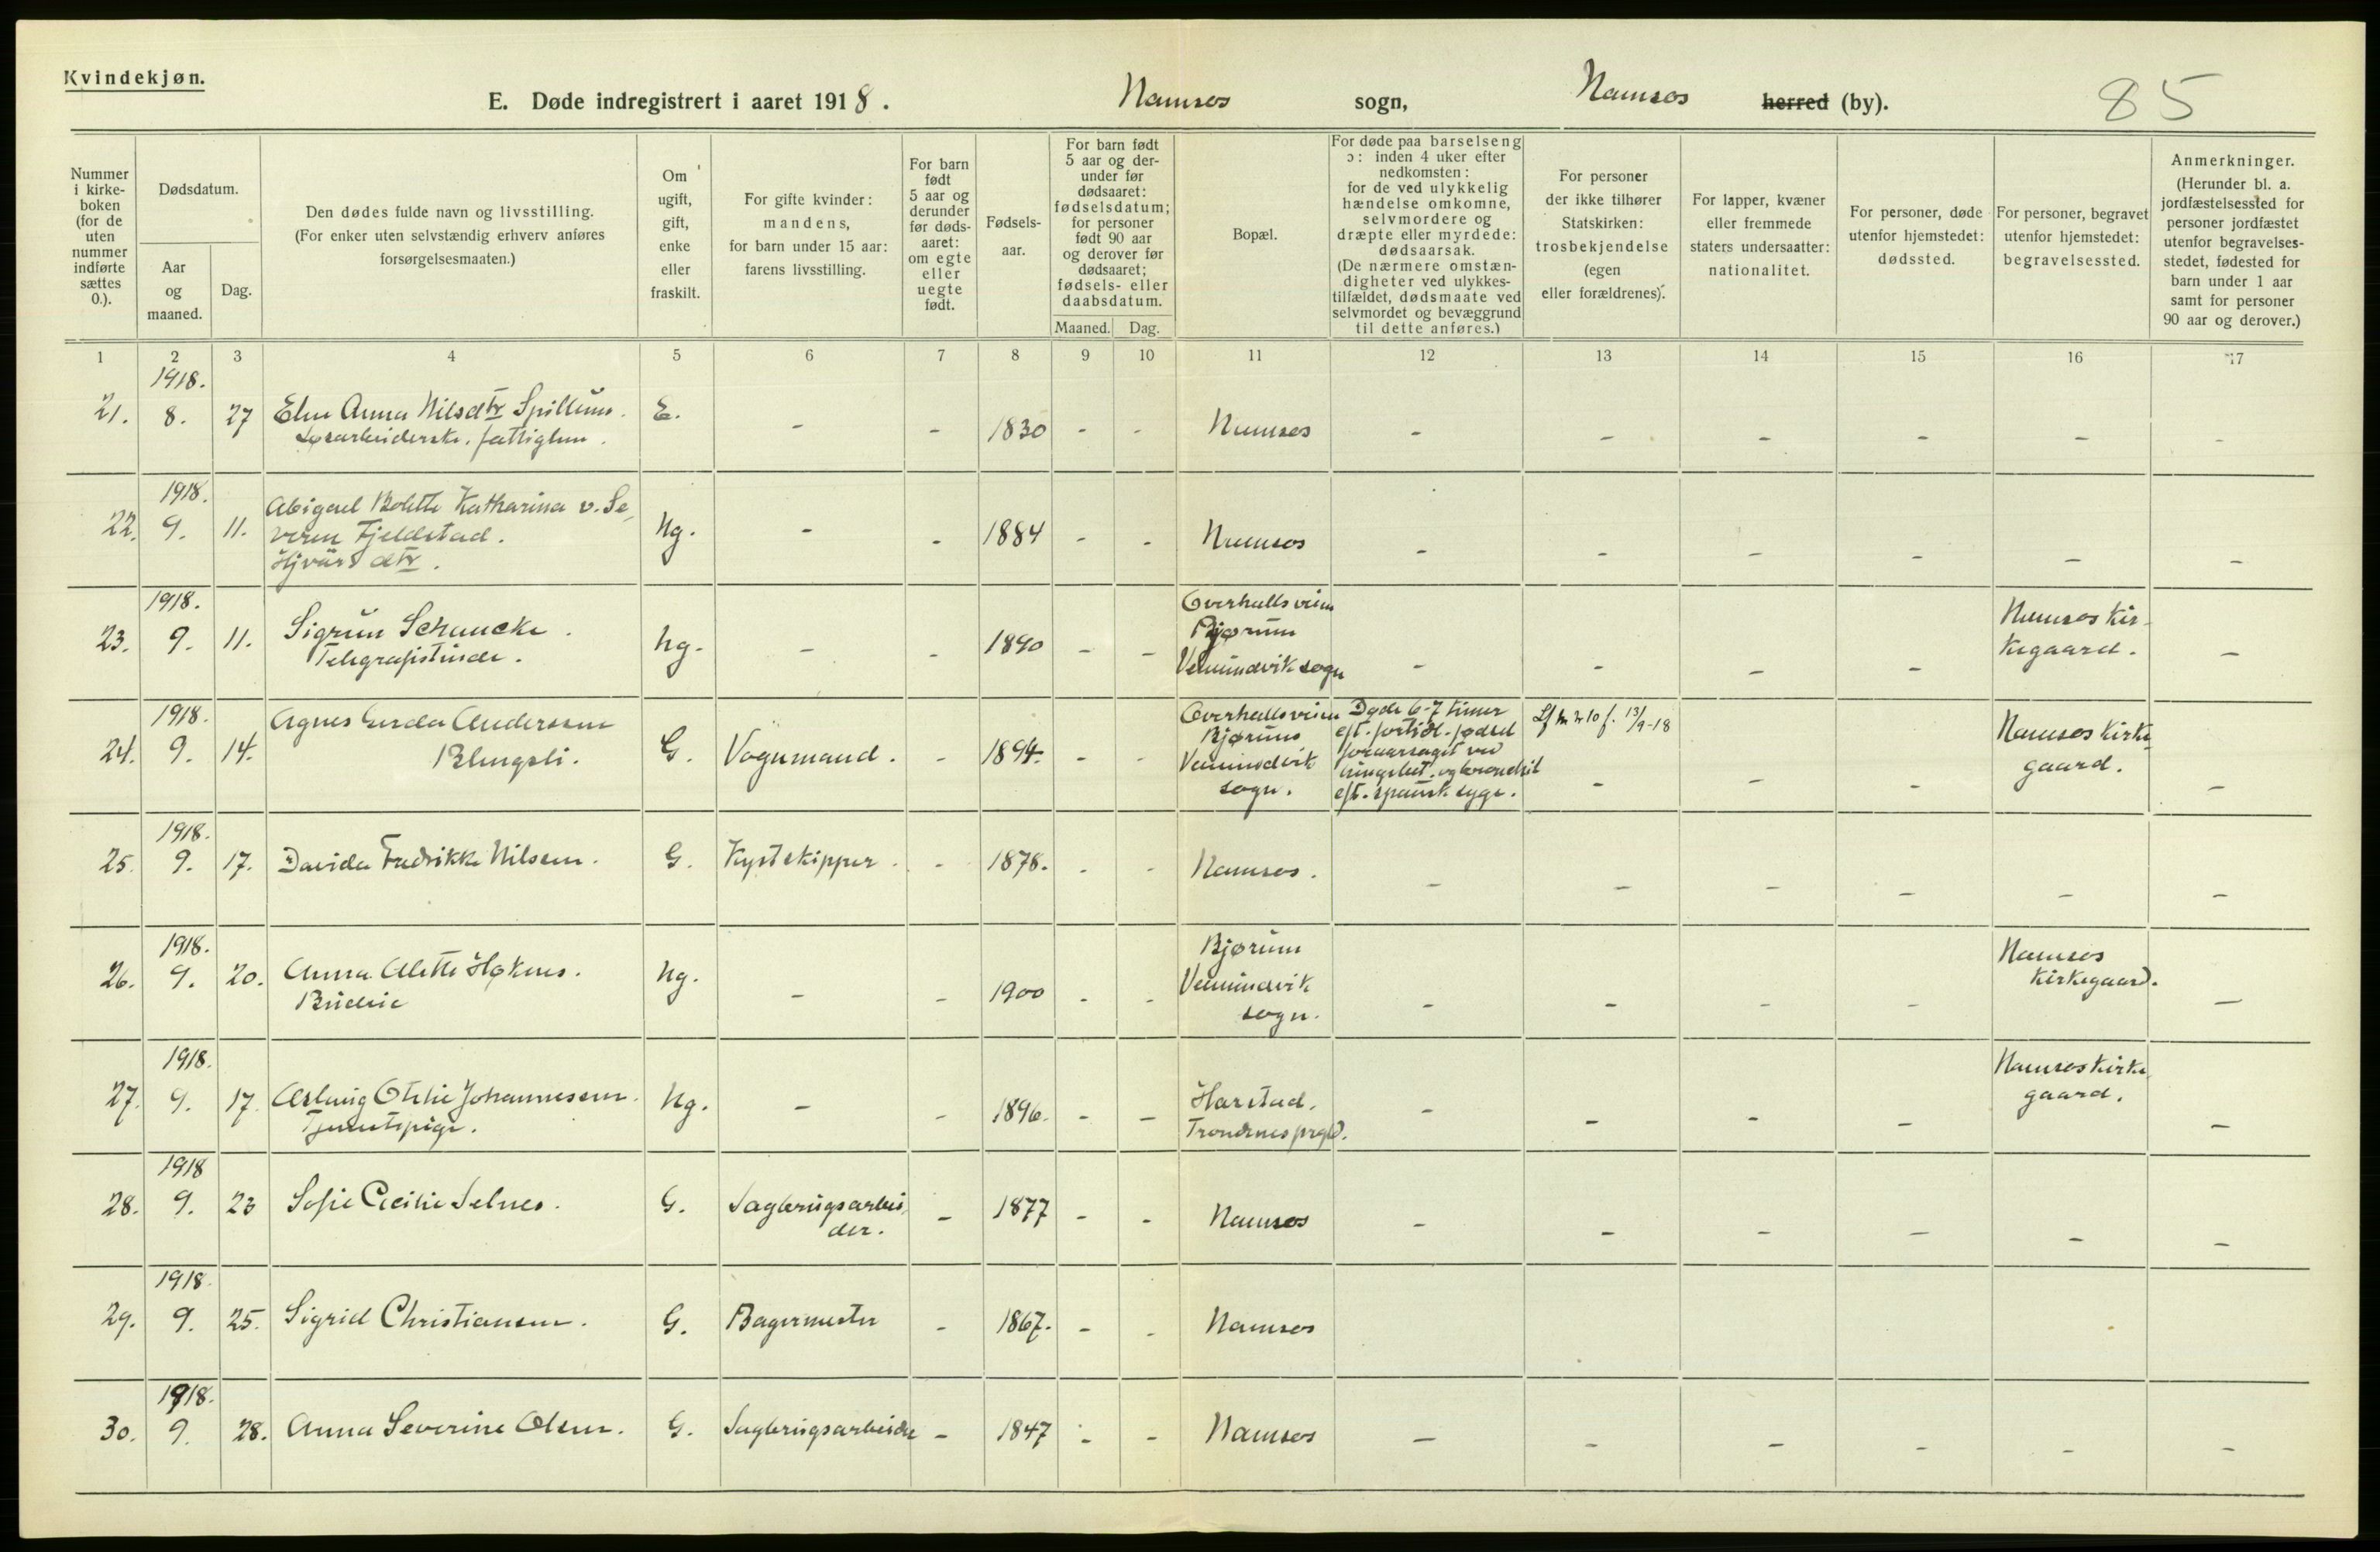 Kvindekjøn.
E. Døde indregistrert i aaret 1918. Namsos sogn, Namsos herred (by). 85
Nummer i kirkeboken (for de uten nummer indførte sættes 0.).
Dødsdatum.
Aar og maaned.
Dag.
Den dødes fulde navn og livsstilling. (For enker uten selvstændig erhverv anføres forsørgelsesmaaten.)
Om ugift, gift, enke eller fraskilt.
For gifte kvinder: mandens, for barn under 15 aar: farens livsstilling.
For barn født 5 aar og derunder før dødsaaret: om egte eller uegte født.
Fødselsaar.
For barn født 5 aar og derunder før dødsaaret: fødselsdatum; for personer født 90 aar og derover før dødsaaret; fødsels- eller daabsdatum.
Maaned. Dag.
Bopæl.
For døde paa barselseng ɔ: inden 4 uker efter nedkomsten: for de ved ulykkelig hændelse omkomne, selvmordere og dræpte eller myrdede: dødsaarsak. (De nærmere omstændigheter ved ulykkestilfældet, dødsmaate ved selvmordet og bevæggrund til dette anføres.)
For personer der ikke tilhører Statskirken: trosbekjendelse (egen eller forældrenes).
For lapper, kvæner eller fremmede staters undersaatter: nationalitet.
For personer, døde utenfor hjemstedet: dødssted.
For personer, begravet utenfor hjemstedet: begravelsessted.
Anmerkninger. (Herunder bl. a. jordfæstelsessted for personer jordfæstet utenfor begravelsesstedet, fødested for barn under 1 aar samt for personer 90 aar og derover.)
1 2 3 4 5 6 7 8 9 10 11 12 13 14 15 16 17
1918.
21. 8. 27 Anna Nilsdtr Spillum. E. - - 1830 - - Namsos - - - - - -
Løsarbeiderske. fattiglem.
1918.
Abigael Bolette Katharina v. Se-
22. 9. 11. verin Fjeldstad. Ug. - - 1884 - - Namsos - - - - - -
dtr.
1918. Overhallsveien
23. 9. 11. Sigrun Schmucke. Ug. - - 1890 - - Bjørum - - - - Namsos Kir-
Telegrafistinde. Vemundvik sogn kegaard. -
1918. Agnes Gerda Anderssen Overhallsveien Døde 6-7 timer 13/9-18
24. 9. 14. Blengsli. G. Vognmand. - 1894. - - Bjørum eft. fortidl. fødsel Namsos Kirke-
Vemundvik foraarsaget ved - - - gaard. -
sogn. eft. spansk syge.
1918.
25. 9. 17. Davida Fredrikke Nilsen. G. Kystskipper. - 1878. - - Namsos. - - - - - -
1918. Bjørum Namsos
26. 9. 20. Anna Alette Ug. - - 1900 - - Vemundvik - - - - Kirkegaard. -
Budeie sogn.
1918. Namsos Kirke-
27. 9. 17. Aslaug Otilie Johannesen. Ug. - - 1896. - - Harstad. - - - - gaard. -
Tjenestepige. Trondenes prgld.
1918
28. 9. 23 Sofie Cecilie Selnes. G. Sagbrugsarbei- - 1877 - - Namsos - - - - - -
der.
1918.
29. 9. 25. Sigrid Christiansen. G. Bagermester - 1867. - - Namsos
1918.
30. 9. 28. Anna Severine Olsen. G. Sagbrugsarbeider - 1847 - - Namsos - - - - - -